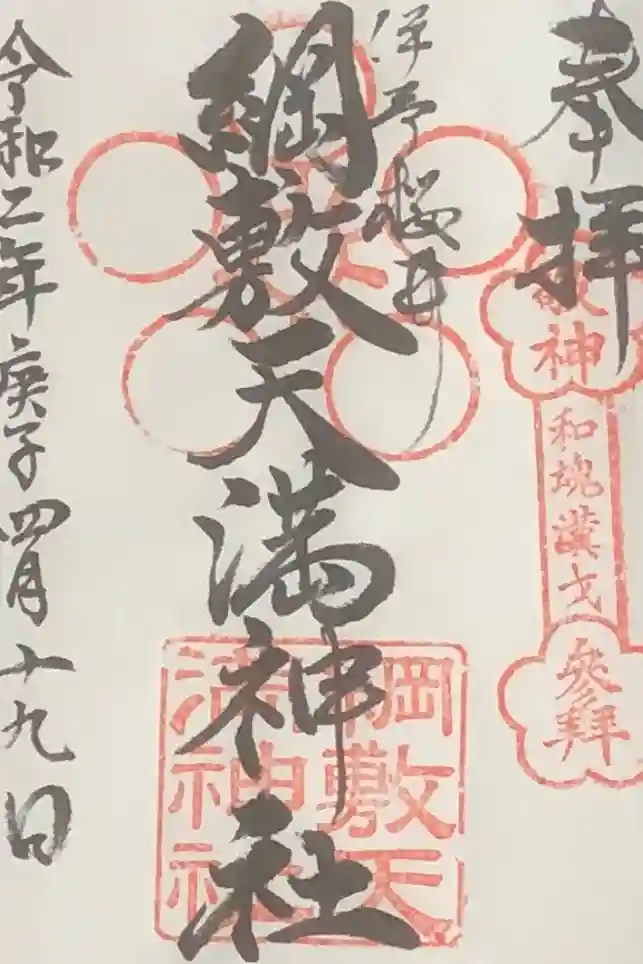 奉拝
敬神
和魂漢才
參拜
伊予桜井
綱敷天満神社
綱敷天
満神社
令和二年庚子四月十九日